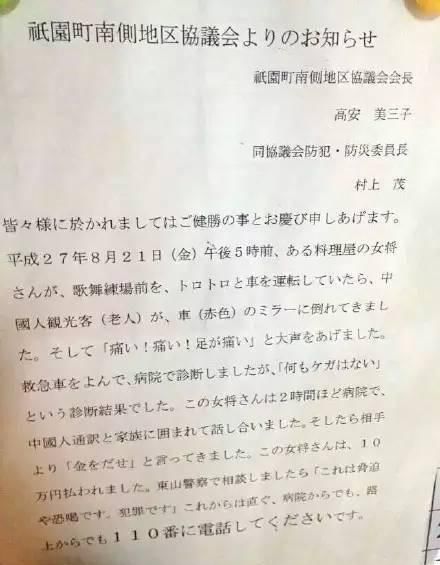 祇園町南側地区協議会よりのお知らせ
祇園町南側地区協議会会長
高安　美三子
同協議会防犯・防災委員長
村上　茂
皆々様に於かれましてはご健勝の事とお慶び申しあげます。
平成２７年８月２１日（金）午後５時前、ある料理屋の女将
さんが、歌舞練場前を、トロトロと車を運転していたら、中
國人観光客（老人）が、車（赤色）のミラーに倒れてきまし
た。そして「痛い！痛い！足が痛い」と大声をあげました。
救急車をよんで、病院で診断しましたが、「何もケガはない」
という診断結果でした。この女将さんは２時間ほど病院で、
中國人通訳と家族に囲まれて話し合いました。そしたら相手
より「金をだせ」と言ってきました。この女将さんは、１０
万円払われました。東山警察で相談しましたら「これは脅迫
や恐喝です。犯罪です」これからは直ぐ、病院からでも、路
上からでも１１０番に電話してくださいです。